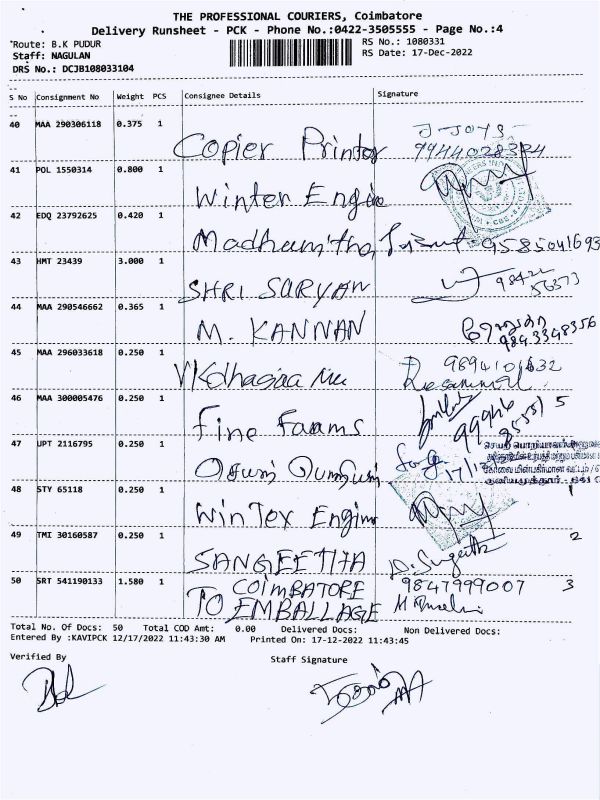 THE PROFESSIONAL COURIERS, Coimbatore
Delivery Runsheet - PCK - Phone No.:0422-3505555 - Page No.:4
Route: B.K PUDUR RS No.: 1080331
Staff: NAGULAN RS Date: 17-Dec-2022
DRS No.: DCJB108033104
S No Consignment No Weight PCS Consignee Details Signature
40 MAA 290306118 0.375 1 Copier Printer J-JOYS-
9944028324
41 POL 1550314 0.800 1 Winter Engin
42 EDQ 23792625 0.420 1 Madhumitha, 9585041693
43 HMT 23439 3.000 1 SHRI SARYAN 98422
56373
44 MAA 290546662 0.365 1 M. KANNAN
9843348356
45 MAA 296033618 0.250 1 9894101632
46 MAA 300005476 0.250 1 Fine Faams
47 UPT 2116795 0.250 1 செயற் பொறியாளர்
48 STY 65118 0.250 1 WinTex Engin
49 TMI 30160587 0.250 1 SANGEETHA 2
50 SRT 541190133 1.580 1 COIMBATORE 9847999007 3
TO EMBALLAGE
Total No. Of Docs: 50 Total COD Amt: 0.00 Delivered Docs: Non Delivered Docs:
Entered By :KAVIPCK 12/17/2022 11:43:30 AM Printed On: 17-12-2022 11:43:45
Verified By Staff Signature